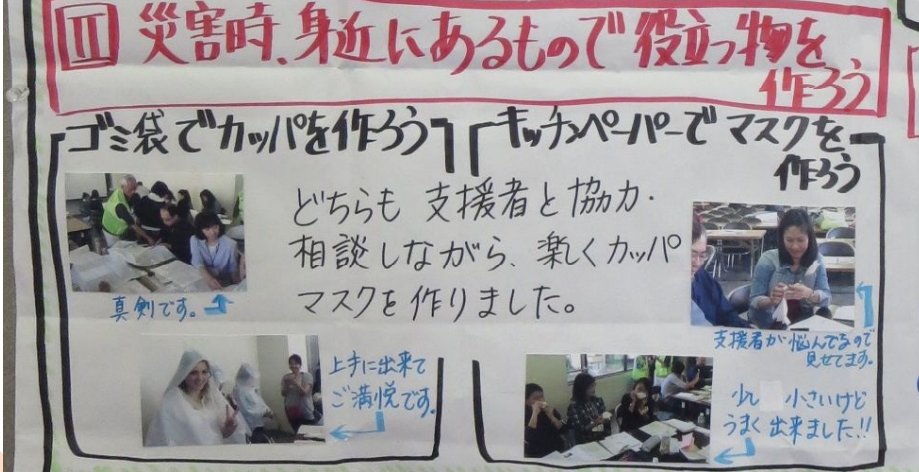 Ⅱ 災害時、身近にあるもので役立つ物を
作ろう
ゴミ袋でカッパを作ろう
キッチンペーパーでマスクを
作ろう
どちらも 支援者と協力・
相談しながら、楽しくカッパ
マスクを作りました。
真剣です。
支援者が悩んでるので
見せてます。
上手に出来て
ご満悦です。
少し 小さいけど
うまく出来ました!!